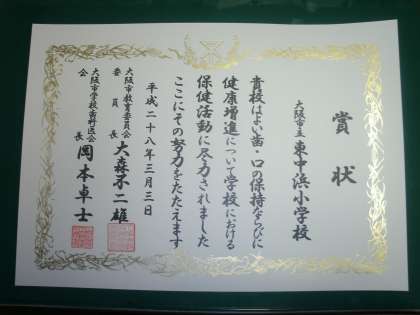 賞状
大阪市立 東中浜小学校
貴校はよい歯・口の保持ならびに
健康増進について学校における
保健活動に尽力されました
ここにその努力をたたえます
平成二十八年三月三日
大阪市教育委員会
委員長 大森不二雄
大阪市学校歯科医会
会長 岡本卓士